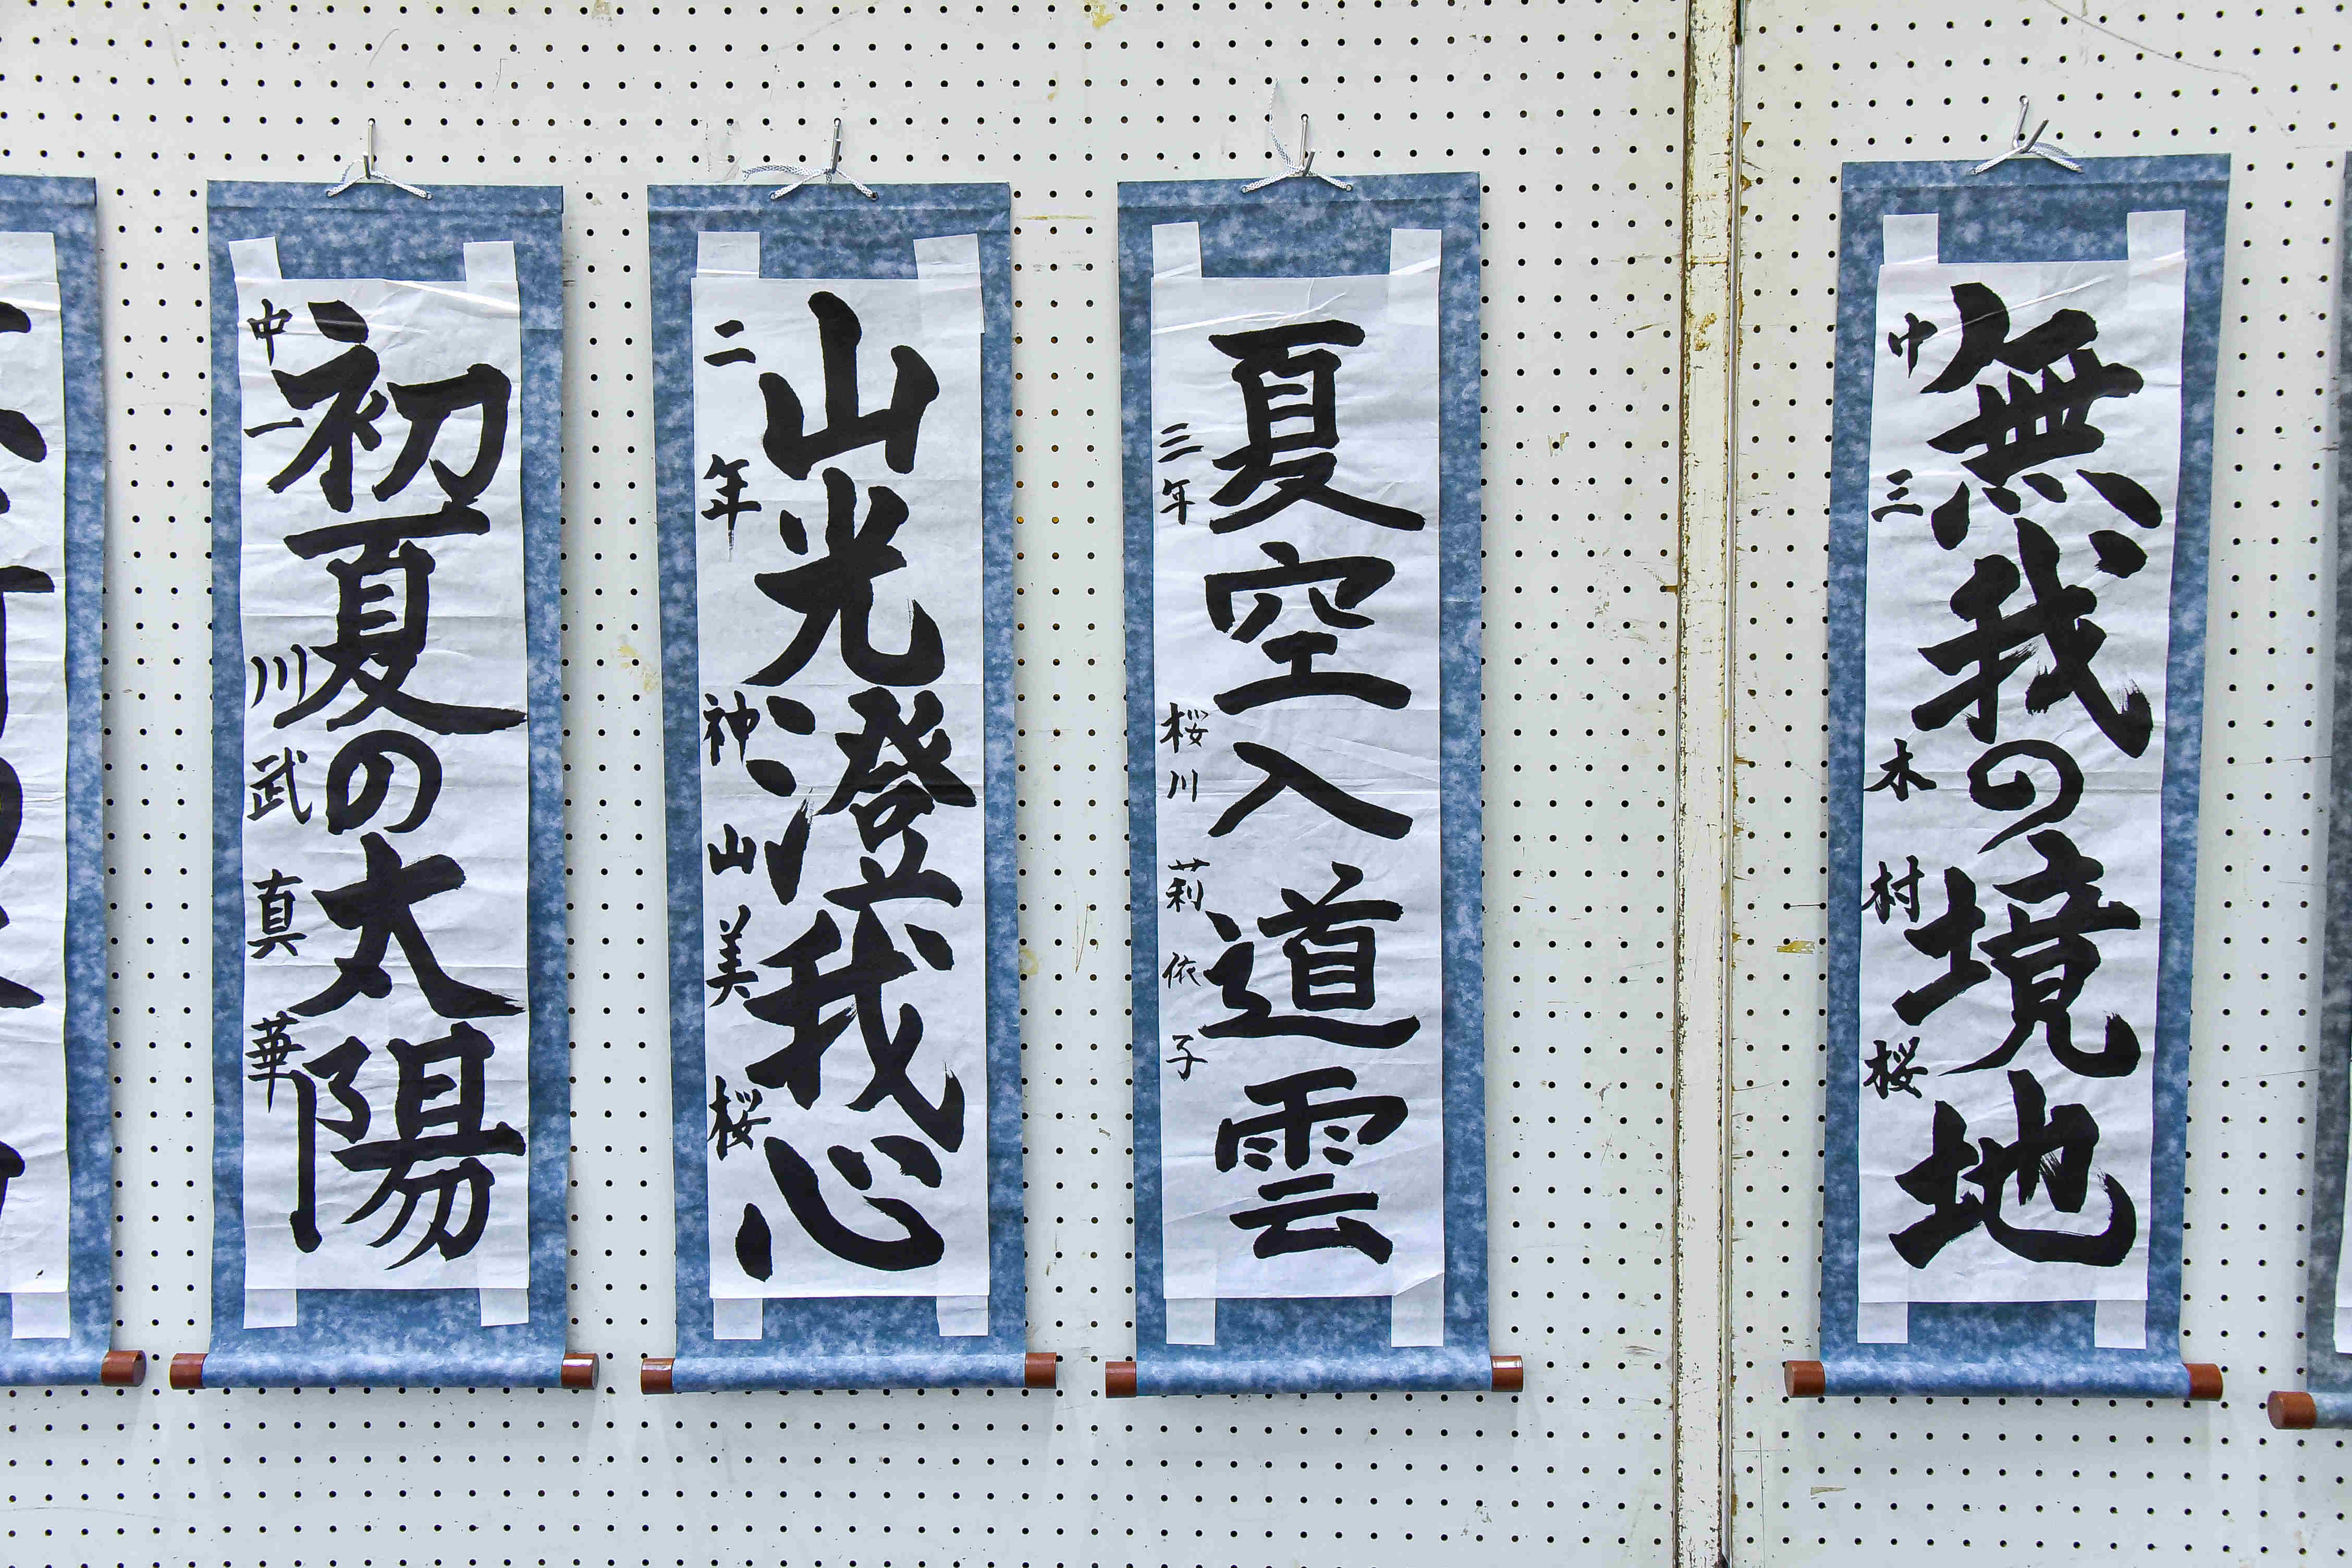 無我の境地
中三 木村桜
夏空入道雲
三年 桜川莉依子
山光澄我心
二年 神山美桜
初夏の太陽
中一 川武真華